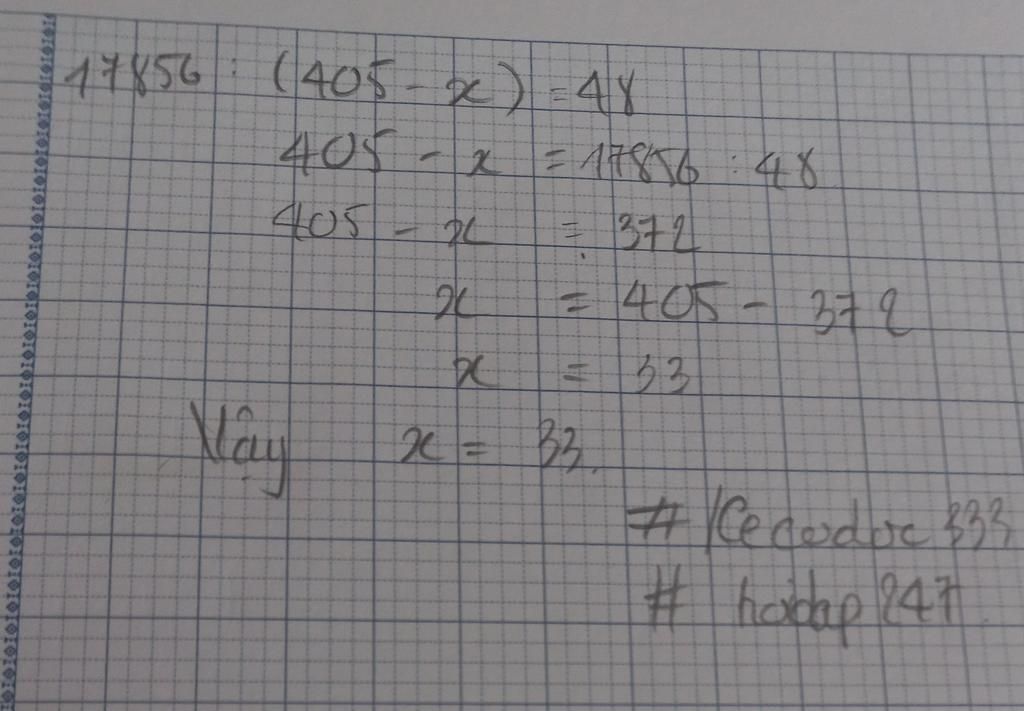 17856 : (405 - x) = 48
405 - x = 17856 : 48
405 - x = 372
x = 405 - 372
x = 33
Vậy x = 33.
# Kecodoc333
# hoidap247